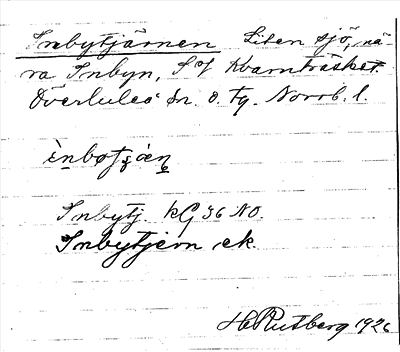 Inbytjärnen Liten sjö, nä-
ra Inbyn, S of Kvarnträsket.
Överluleå sn. o. tg. Norrb. l.
Inbytj. kG 36 NO.
Inbytjern ek.
H Rutberg 1926